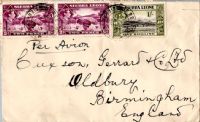 SIERRA LEONE SIERRA LEONE SIERRA LEONE
Per Avion
Cuxson, Gerrard & Co. Ltd
Oldbury
Birmingham
England